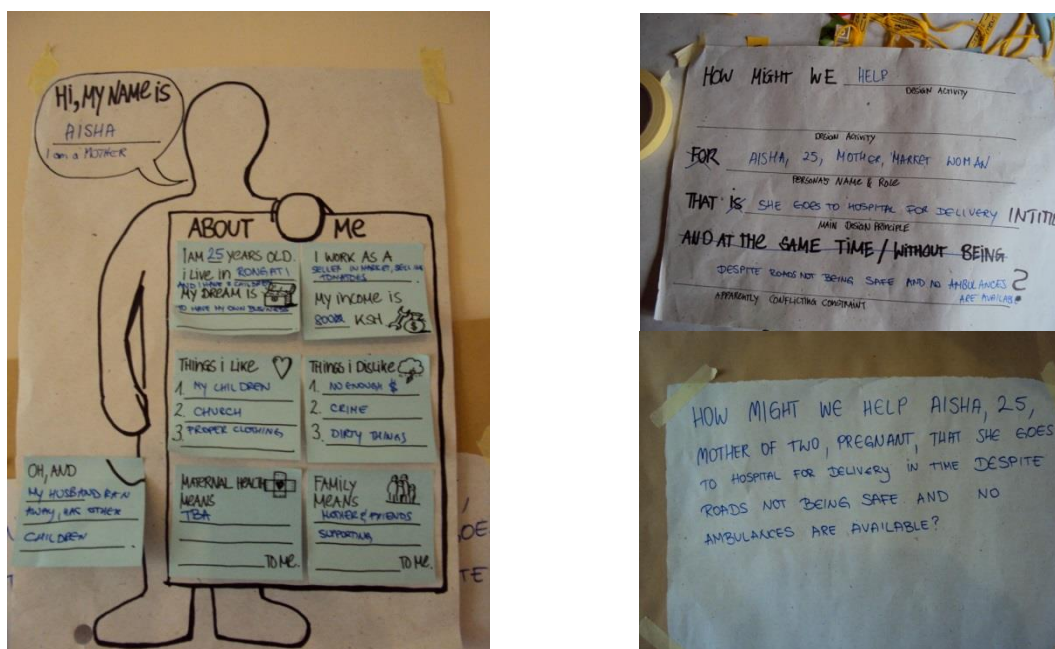 Hi, MY NAME is
AISHA
I am a MOTHER
ABOUT ME
I AM 25 YEARS OLD.
i Live in RONGAI
AND I HAVE 2 CHILDREN
MY DREAM IS
TO HAVE MY OWN BUSINESS
I WORK AS A
SELLER IN MARKET, SELLING
TOMATOES
MY iNCOME iS
KSH
THiNGS i LiKE
1. MY CHILDREN
2. CHURCH
3. PROPER CLOTHING
THiNGS i DiSLiKE
1. NO ENOUGH $
2. CRIME
3. DIRTY THINGS
MATERNAL HEALTH
MEANS
TBA
TO ME.
FAMILY
MEANS
MOTHER & FRIENDS
SUPPORTING
TO ME.
OH, AND
MY HUSBAND RAN
AWAY, HAS OTHER
CHILDREN
HOW MIGHT WE HELP
DESIGN ACTIVITY
DESIGN ACTIVITY
FOR AISHA, 25, MOTHER, MARKET WOMAN
PERSONA'S NAME & ROLE
THAT IS SHE GOES TO HOSPITAL FOR DELIVERY
MAIN DESIGN PRINCIPLE
AND AT THE SAME TIME / WITHOUT BEING
DESPITE ROADS NOT BEING SAFE AND NO AMBULANCES ?
ARE AVAILAB
APPARENTLY CONFLICTING CONSTRAINT
HOW MIGHT WE HELP AISHA, 25,
MOTHER OF TWO, PREGNANT, THAT SHE GOES
TO HOSPITAL FOR DELIVERY IN TIME DESPITE
ROADS NOT BEING SAFE AND NO
AMBULANCES ARE AVAILABLE?